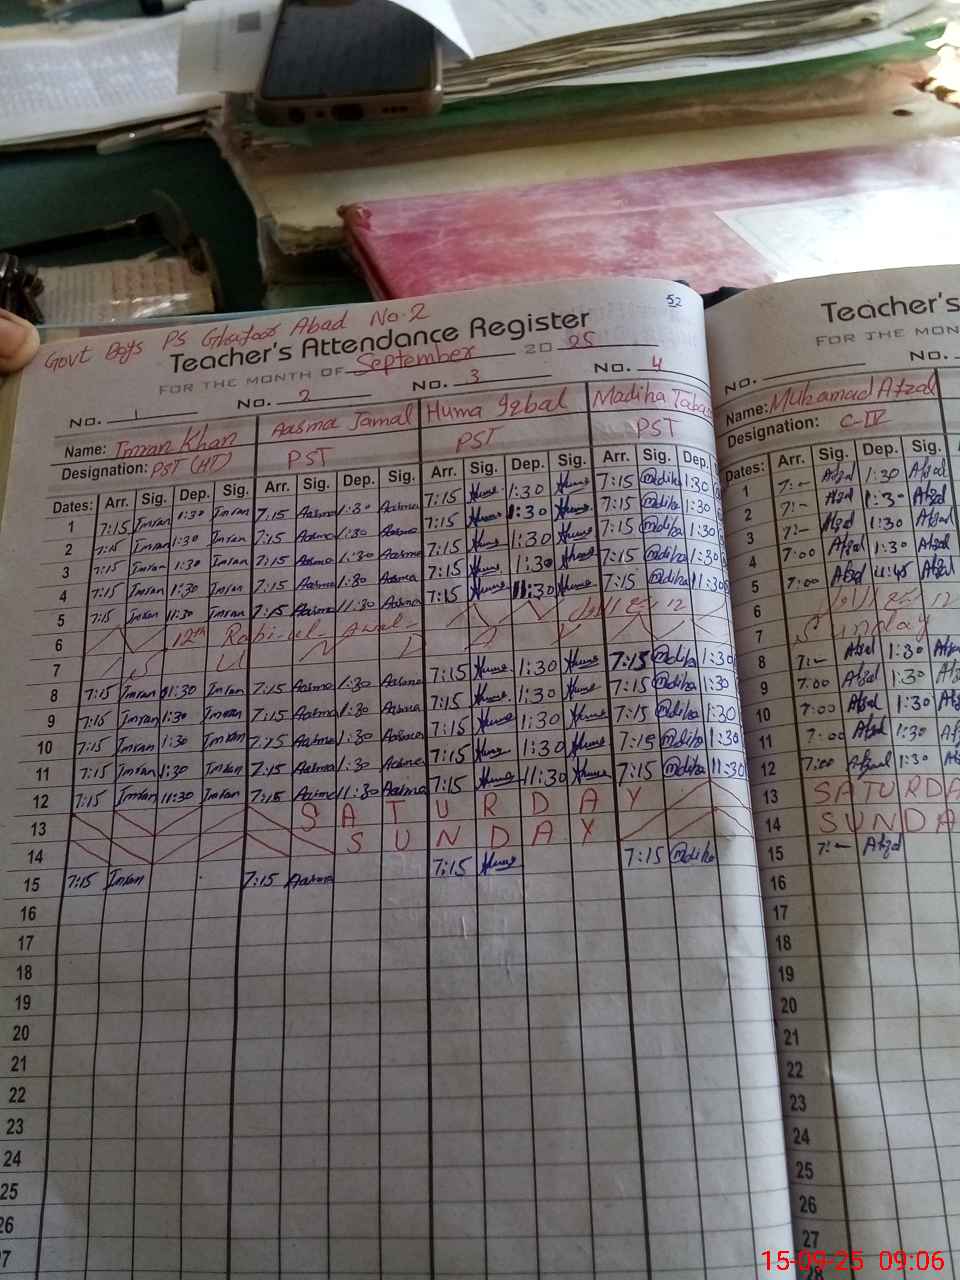 52
Govt Boys PS Ghafoor Abad No.2
Teacher's Attendance Register
FOR THE MONTH OF September 20 25
No. 1 No. 2 No. 3 No. 4
Name: Imran Khan Aasma Jamal Huma Iqbal Madiha
Designation: PST (HT) PST PST PST
Dates: Arr. Sig. Dep. Sig. Arr. Sig. Dep. Sig. Arr. Sig. Dep. Sig. Arr. Sig. Dep.
1 7:15 Imran 1:30 Imran 7:15 Aasma 1:30 Aasma 7:15 Huma 1:30 Huma 7:15 Madiha 1:30
2 7:15 Imran 1:30 Imran 7:15 Aasma 1:30 Aasma 7:15 Huma 1:30 Huma 7:15 Madiha 1:30
3 7:15 Imran 1:30 Imran 7:15 Aasma 1:30 Aasma 7:15 Huma 1:30 Huma 7:15 Madiha 1:30
4 7:15 Imran 1:30 Imran 7:15 Aasma 1:30 Aasma 7:15 Huma 1:30 Huma 7:15 Madiha 1:30
5 7:15 Imran 11:30 Imran 7:15 Aasma 11:30 Aasma 7:15 Huma 11:30 Huma 7:15 Madiha 11:30
6 12th Rabi-ul-Awal
7
8 7:15 Imran 1:30 Imran 7:15 Aasma 1:30 Aasma 7:15 Huma 1:30 Huma 7:15 Madiha 1:30
9 7:15 Imran 1:30 Imran 7:15 Aasma 1:30 Aasma 7:15 Huma 1:30 Huma 7:15 Madiha 1:30
10 7:15 Imran 1:30 Imran 7:15 Aasma 1:30 Aasma 7:15 Huma 1:30 Huma 7:15 Madiha 1:30
11 7:15 Imran 1:30 Imran 7:15 Aasma 1:30 Aasma 7:15 Huma 1:30 Huma 7:15 Madiha 1:30
12 7:15 Imran 11:30 Imran 7:15 Aasma 11:30 Aasma 7:15 Huma 11:30 Huma 7:15 Madiha 11:30
13 SATURDAY
14 SUNDAY
15 7:15 Imran 7:15 Aasma 7:15 Huma 7:15 Madiha
16
17
18
19
20
21
22
23
24
25
26
27
Teacher's
FOR THE MON
No. No.
Name: Muhamad Afzal
Designation: C-IV
Dates: Arr. Sig. Dep. Sig.
1 7:- Afzal 1:30 Afzal
2 7:- Afzal 1:30 Afzal
3 7:- Afzal 1:30 Afzal
4 7:00 Afzal 1:30 Afzal
5 7:00 Afzal 11:45 Afzal
6
7 Sunday
8 7:- Afzal 1:30
9 7:00 Afzal 1:30
10 7:00 Afzal 1:30
11 7:00 Afzal 1:30
12 7:00 Afzal 1:30
13 SATURDA
14 SUNDA
15 7:- Afzal
16
17
18
19
20
21
22
23
24
25
26
27
28
15-09-25 09:06